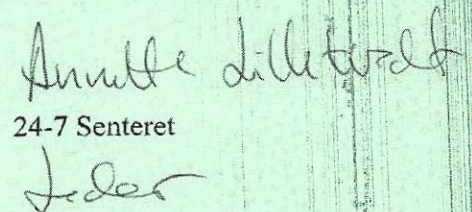 Annette Lilletvedt
24-7 Senteret
Leder